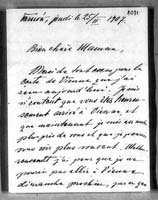 jeudi le 25/II 1907.
Bien chère Maman,
Merci de tout cœur pour la
carte de Vienne que j'ai
reçue aujourd'hui. Je
suis si content que vous êtes heureu-
sement arrivé à Vienne, et
que maintenant je suis un peu
plus près de vous et que je pour-
rai vous voir plus souvent.
j'ai peur que je ne
pourrai pas aller à Vienne
dimanche prochain, parce que